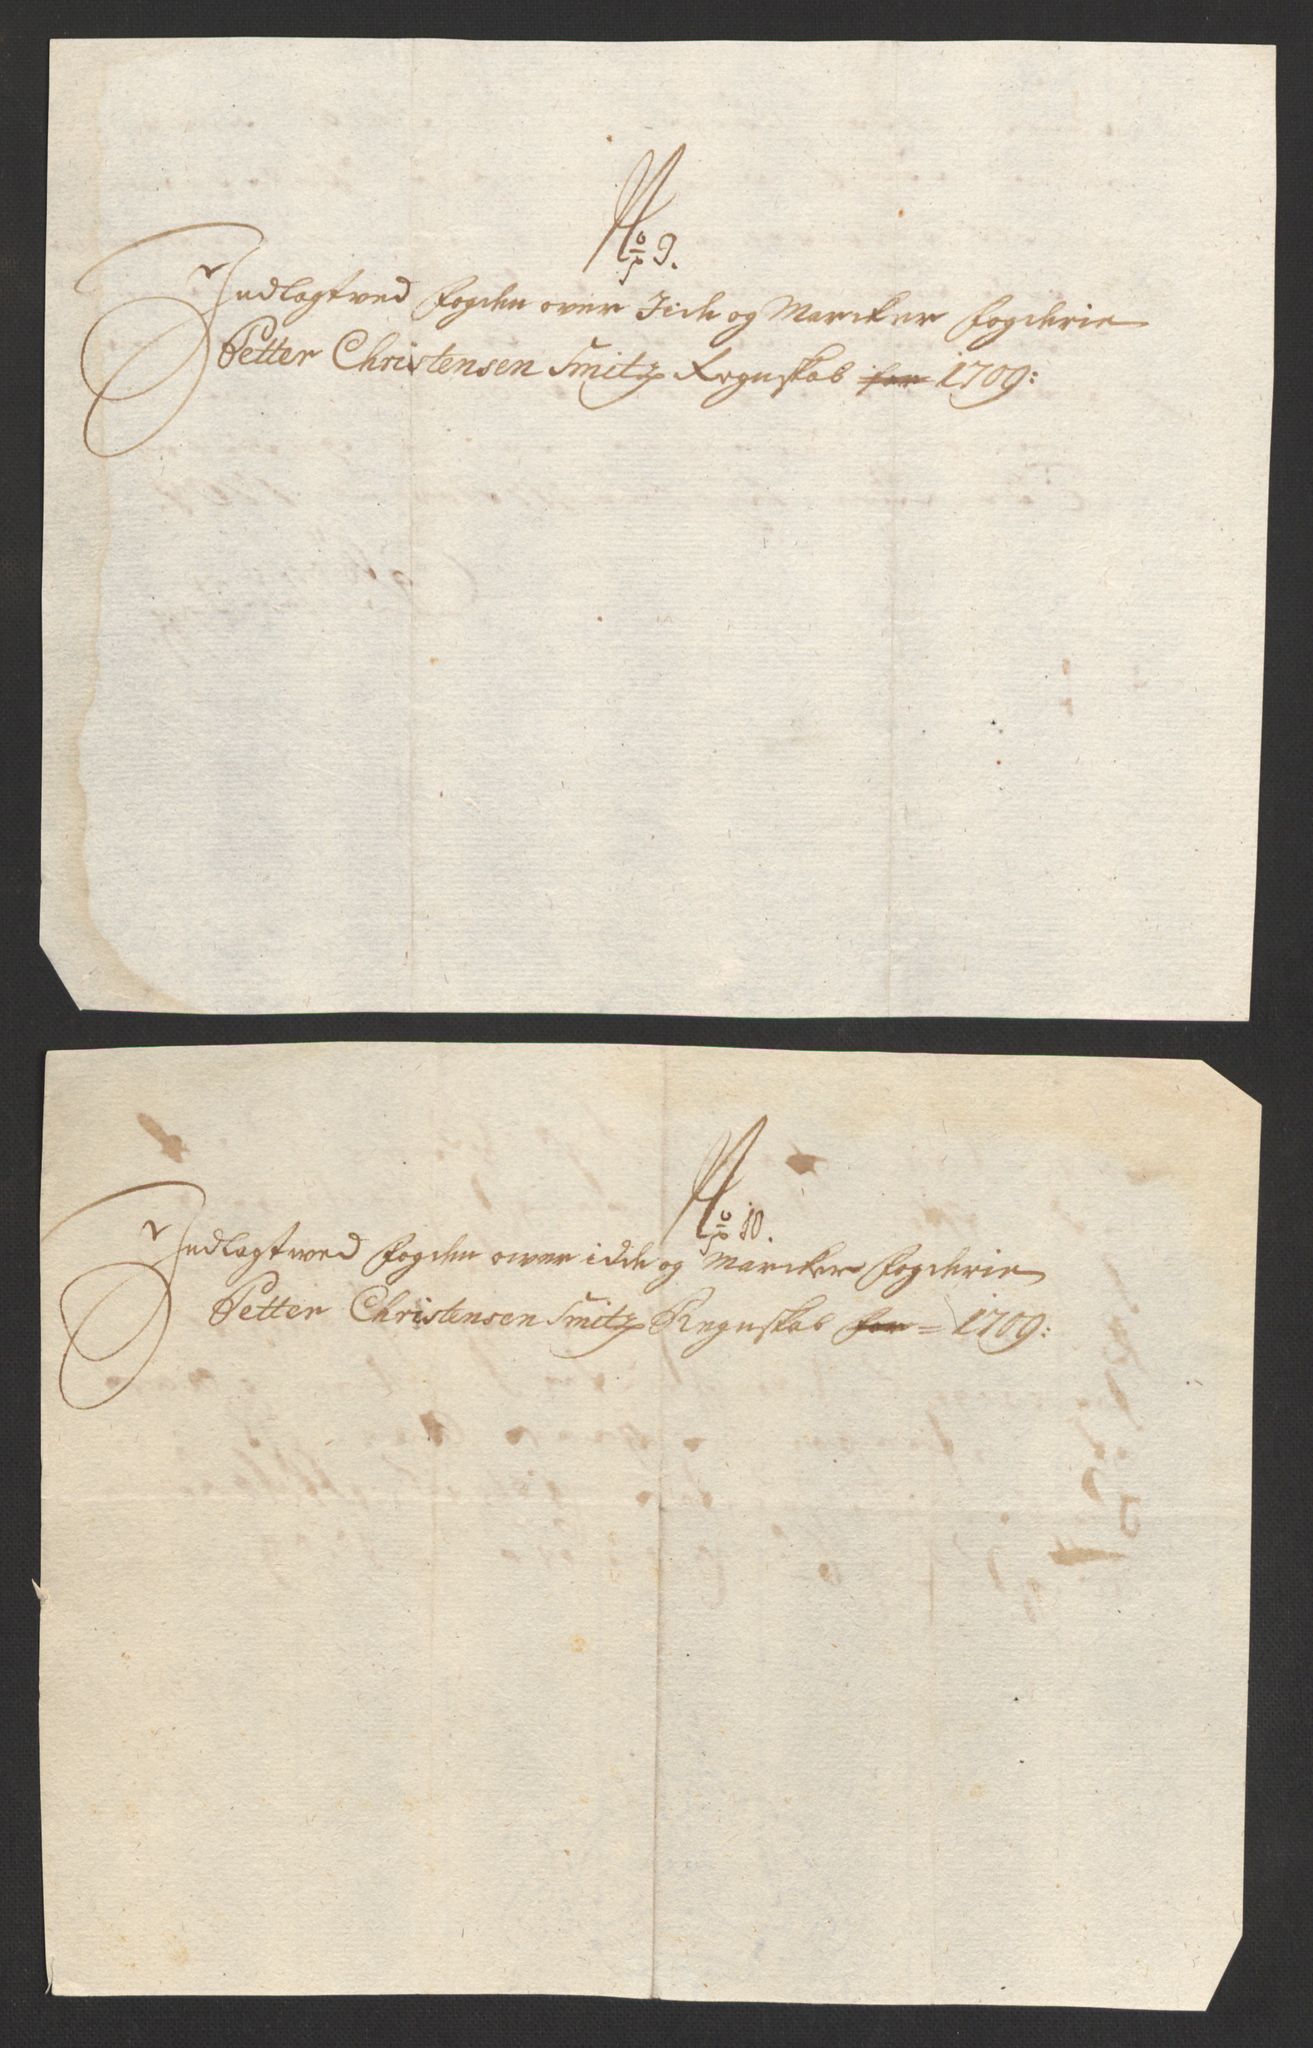 No 9.
Indlagt ved fogden over Idde og Marcker fogderie
Petter Christensen Smitz Regnskab for 1709:
No 10.
Indlagt ved fogden over idde og Marcker fogderie
Petter Christensen Smitz Regnskab for = 1709: